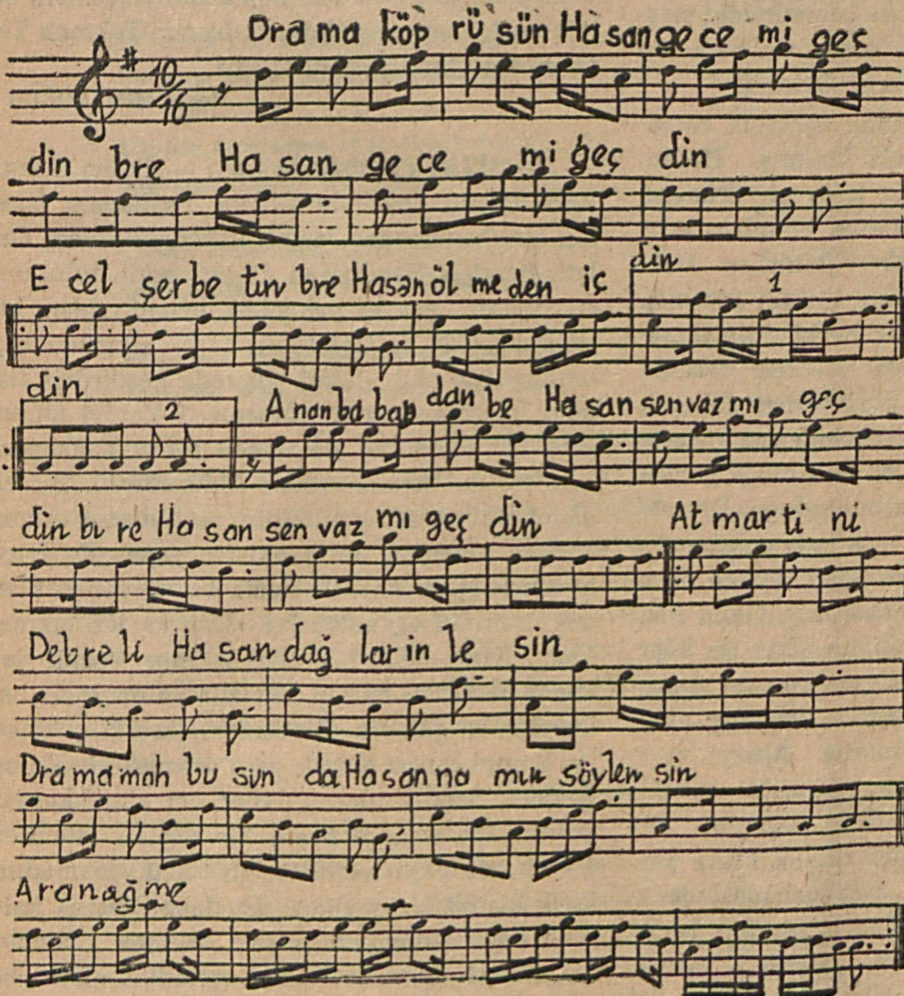 Dra ma köp rü sün Ha san ge ce mi geç
10
16
din bre Ha san ge ce mi geç din
E cel şerbe tin bre Hasan öl me den iç din
1
din
2
A nan ba bap dan be Ha san sen vaz mı geç
din bi re Ha san sen vaz mı geç din At mar ti ni
Debre li Ha san dağ lar in le sin
Dra ma mah bu sun da Ha san na mın söylen sin
Aranağme